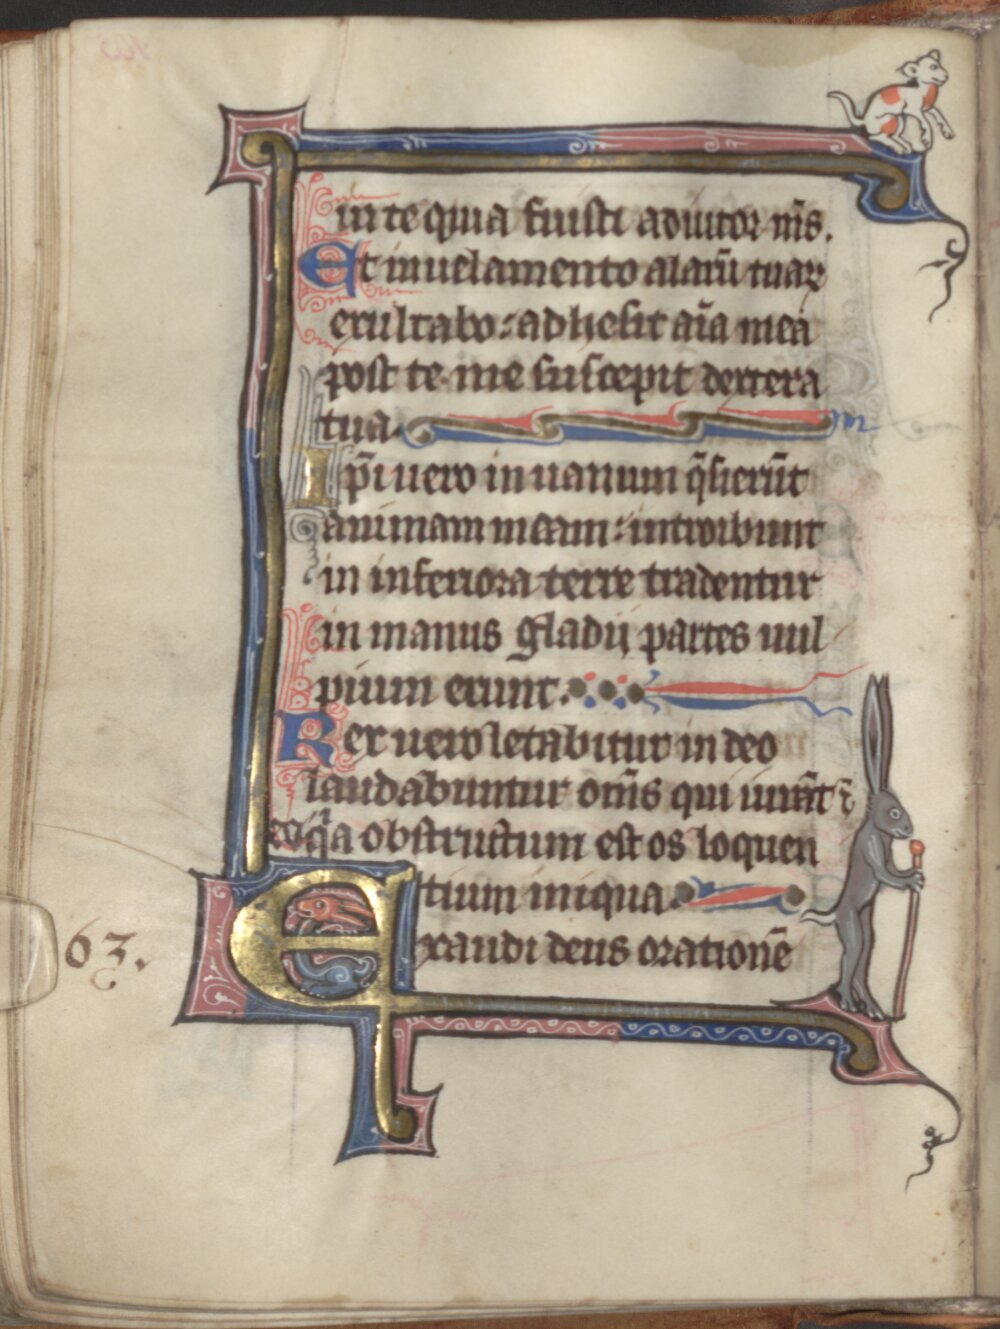 in te quia fuisti adiutor nr̄s.
Et in uelamento alarū tuarꝝ
exultabo: adhesit aīa mea
post te me suscepit dextera
tua.
Ip̄i uero in uanum q̄sierūt
animam meam: introibunt
in inferiora terre tradentur
in manus gladij partes uul
pium erunt.
Rex uero letabitur in deo
laudabuntur om̄s qui iurāt ī
eo qͣa obstructum est os loquen
tium iniqua.
Exaudi deus orationē
63.